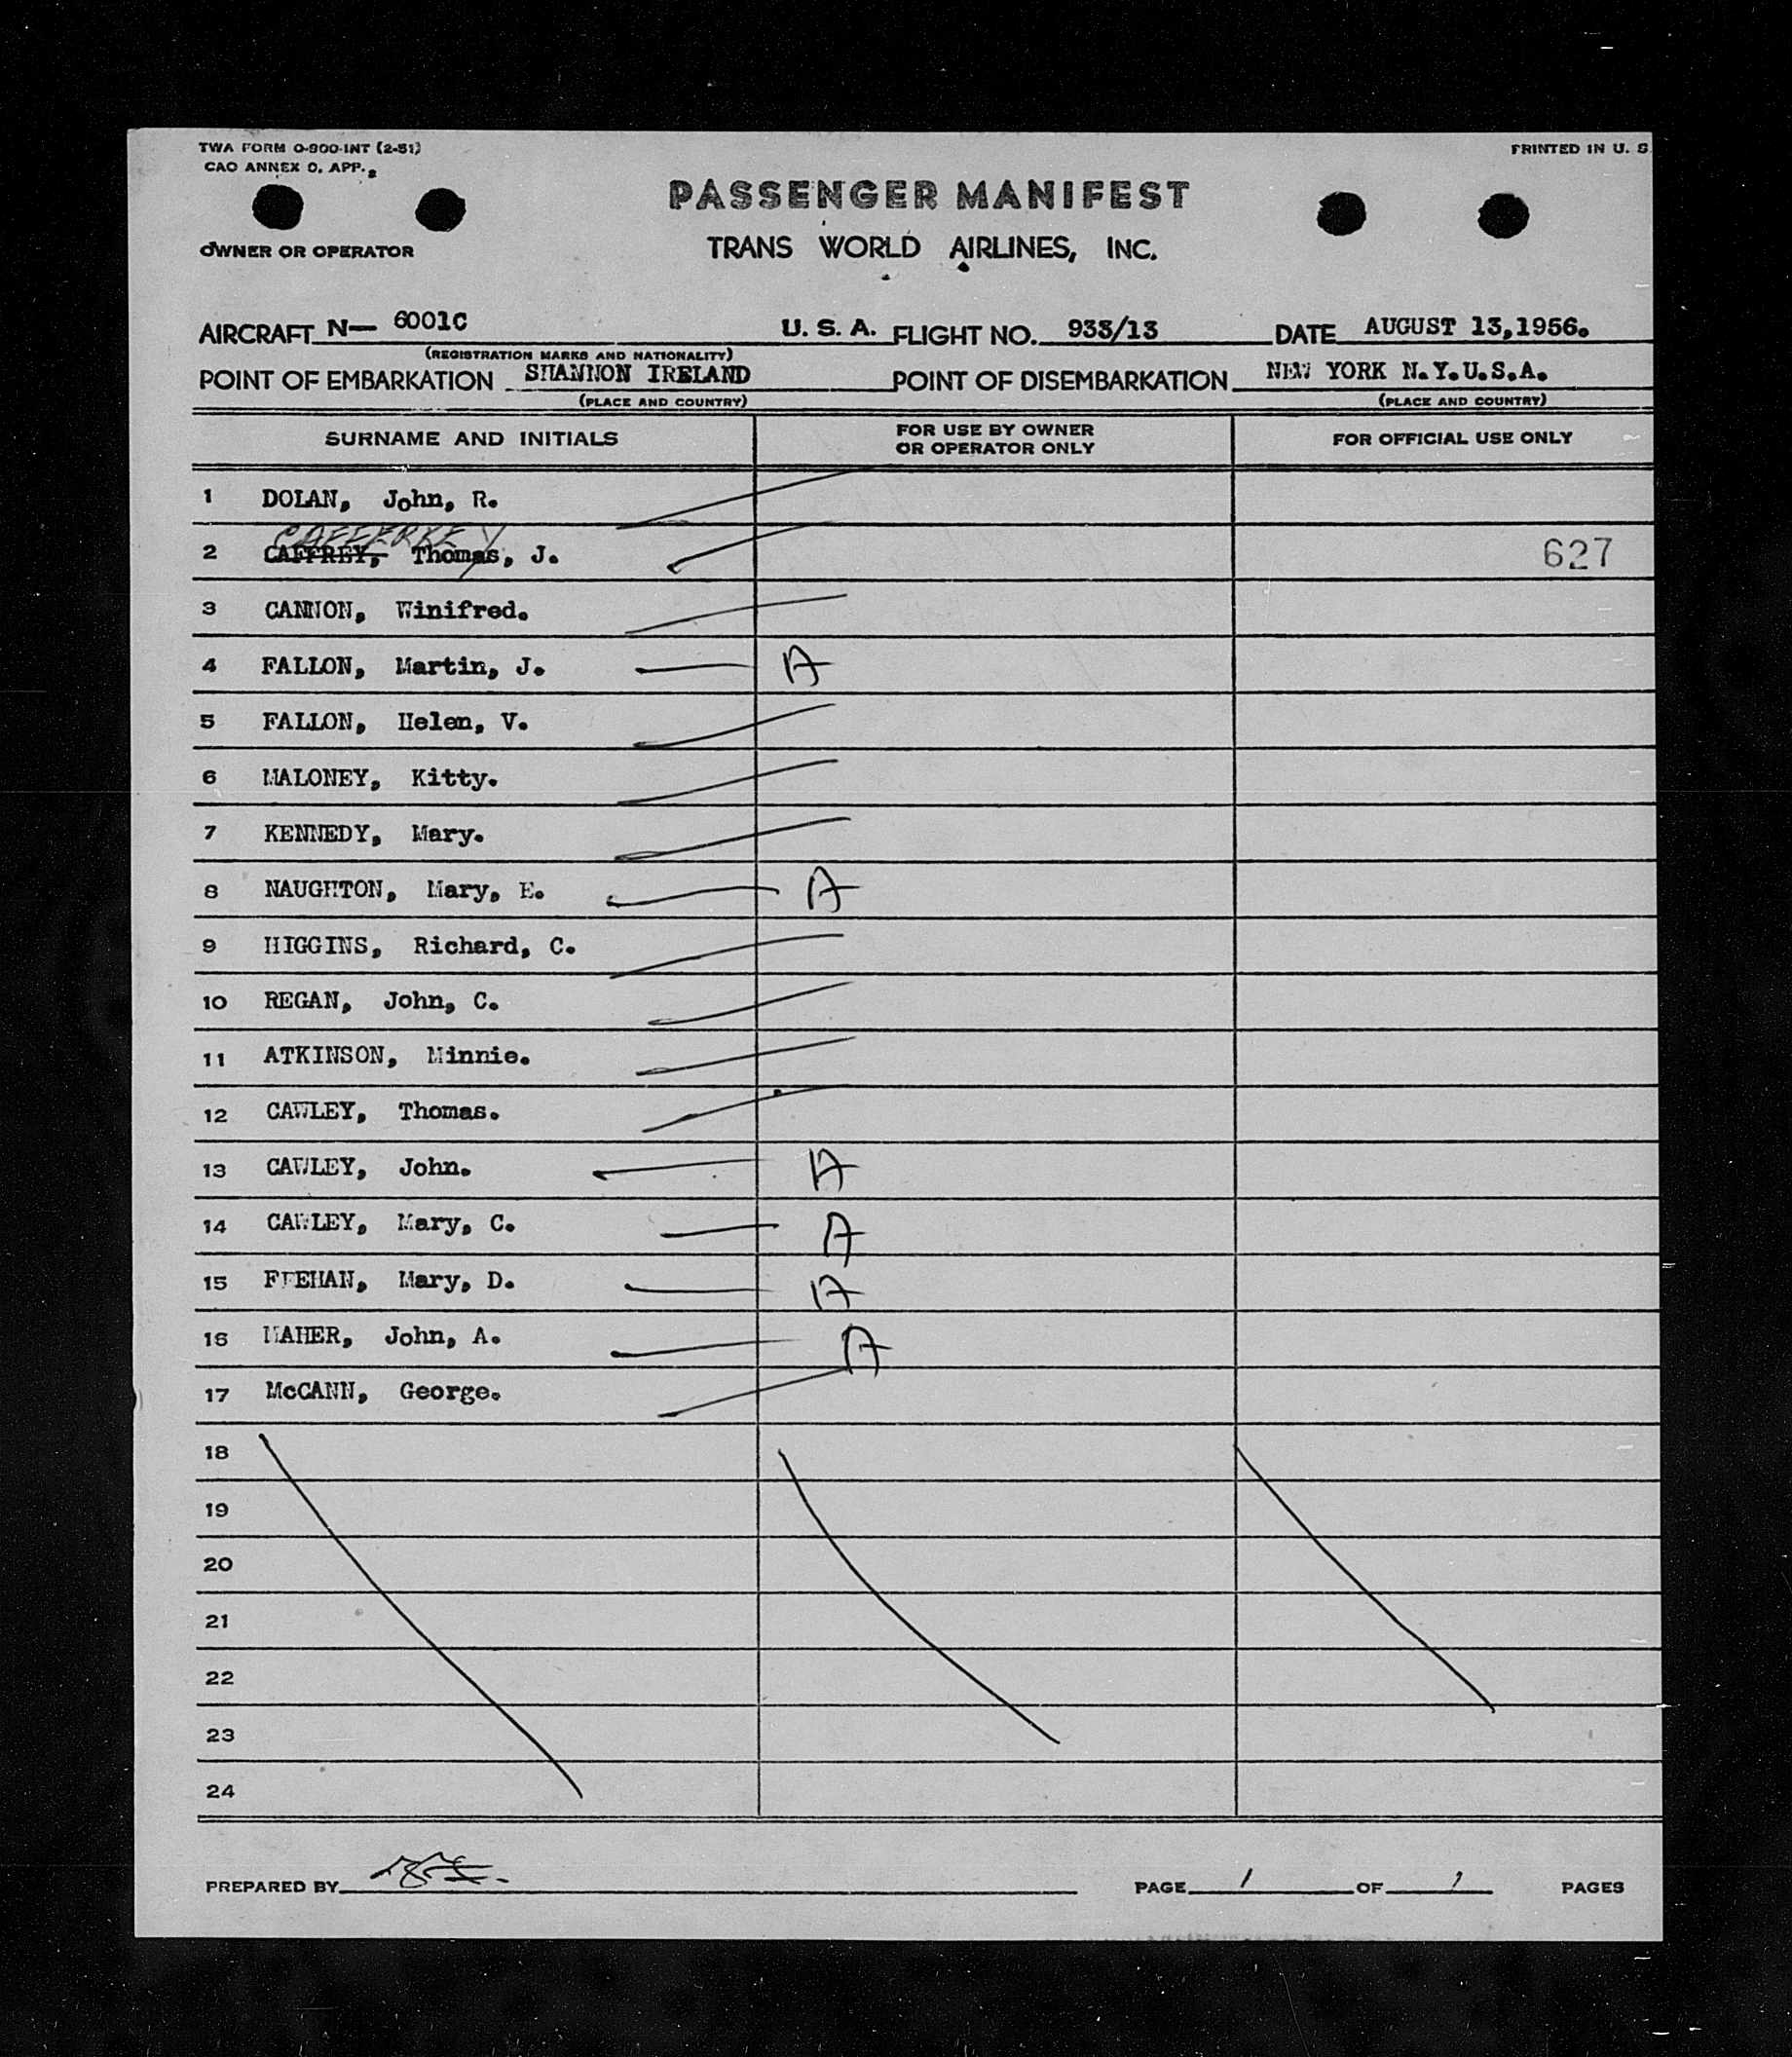 TWA FORM O-900-INT (2-51) PRINTED IN U. S
CAO ANNEX 0. APP. 2
PASSENGER MANIFEST
OWNER OR OPERATOR TRANS WORLD AIRLINES, INC.
AIRCRAFT N— 6001C U. S. A. FLIGHT NO. 933/13 DATE AUGUST 13,1956.
(REGISTRATION MARKS AND NATIONALITY)
POINT OF EMBARKATION SHANNON IRELAND POINT OF DISEMBARKATION NEW YORK N.Y.U.S.A.
(PLACE AND COUNTRY) (PLACE AND COUNTRY)
SURNAME AND INITIALS FOR USE BY OWNER OR OPERATOR ONLY FOR OFFICIAL USE ONLY
1 DOLAN, John, R.
CAFFERKEY
2 CAFFREY, Thomas, J. 627
3 CANNON, Winifred.
4 FALLON, Martin, J. A
5 FALLON, Helen, V.
6 MALONEY, Kitty.
7 KENNEDY, Mary.
8 NAUGHTON, Mary, E. A
9 HIGGINS, Richard, C.
10 REGAN, John, C.
11 ATKINSON, Minnie.
12 CAWLEY, Thomas.
13 CAWLEY, John. A
14 CAWLEY, Mary, C. A
15 FEEHAN, Mary, D. A
16 MAHER, John, A. A
17 McCANN, George.
18
19
20
21
22
23
24
PREPARED BY PAGE 1 OF 1 PAGES